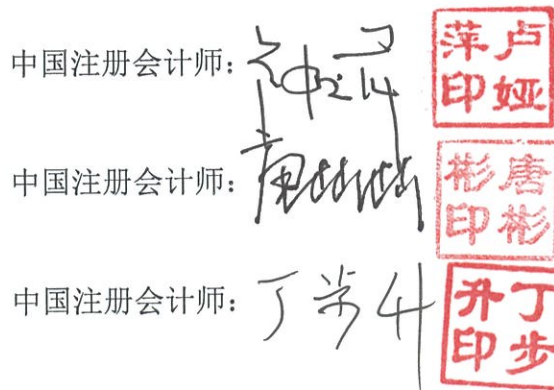 中国注册会计师:
卢娅萍印
中国注册会计师:唐彬彬
唐彬彬印
中国注册会计师:丁步升
丁步升印